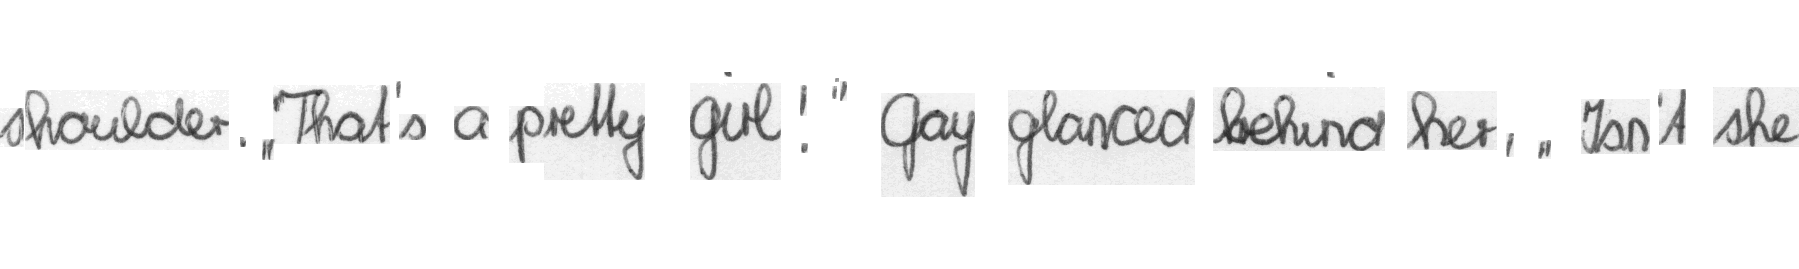 shoulder. „That's a pretty girl!" Gay glanced behind her, „Isn't she